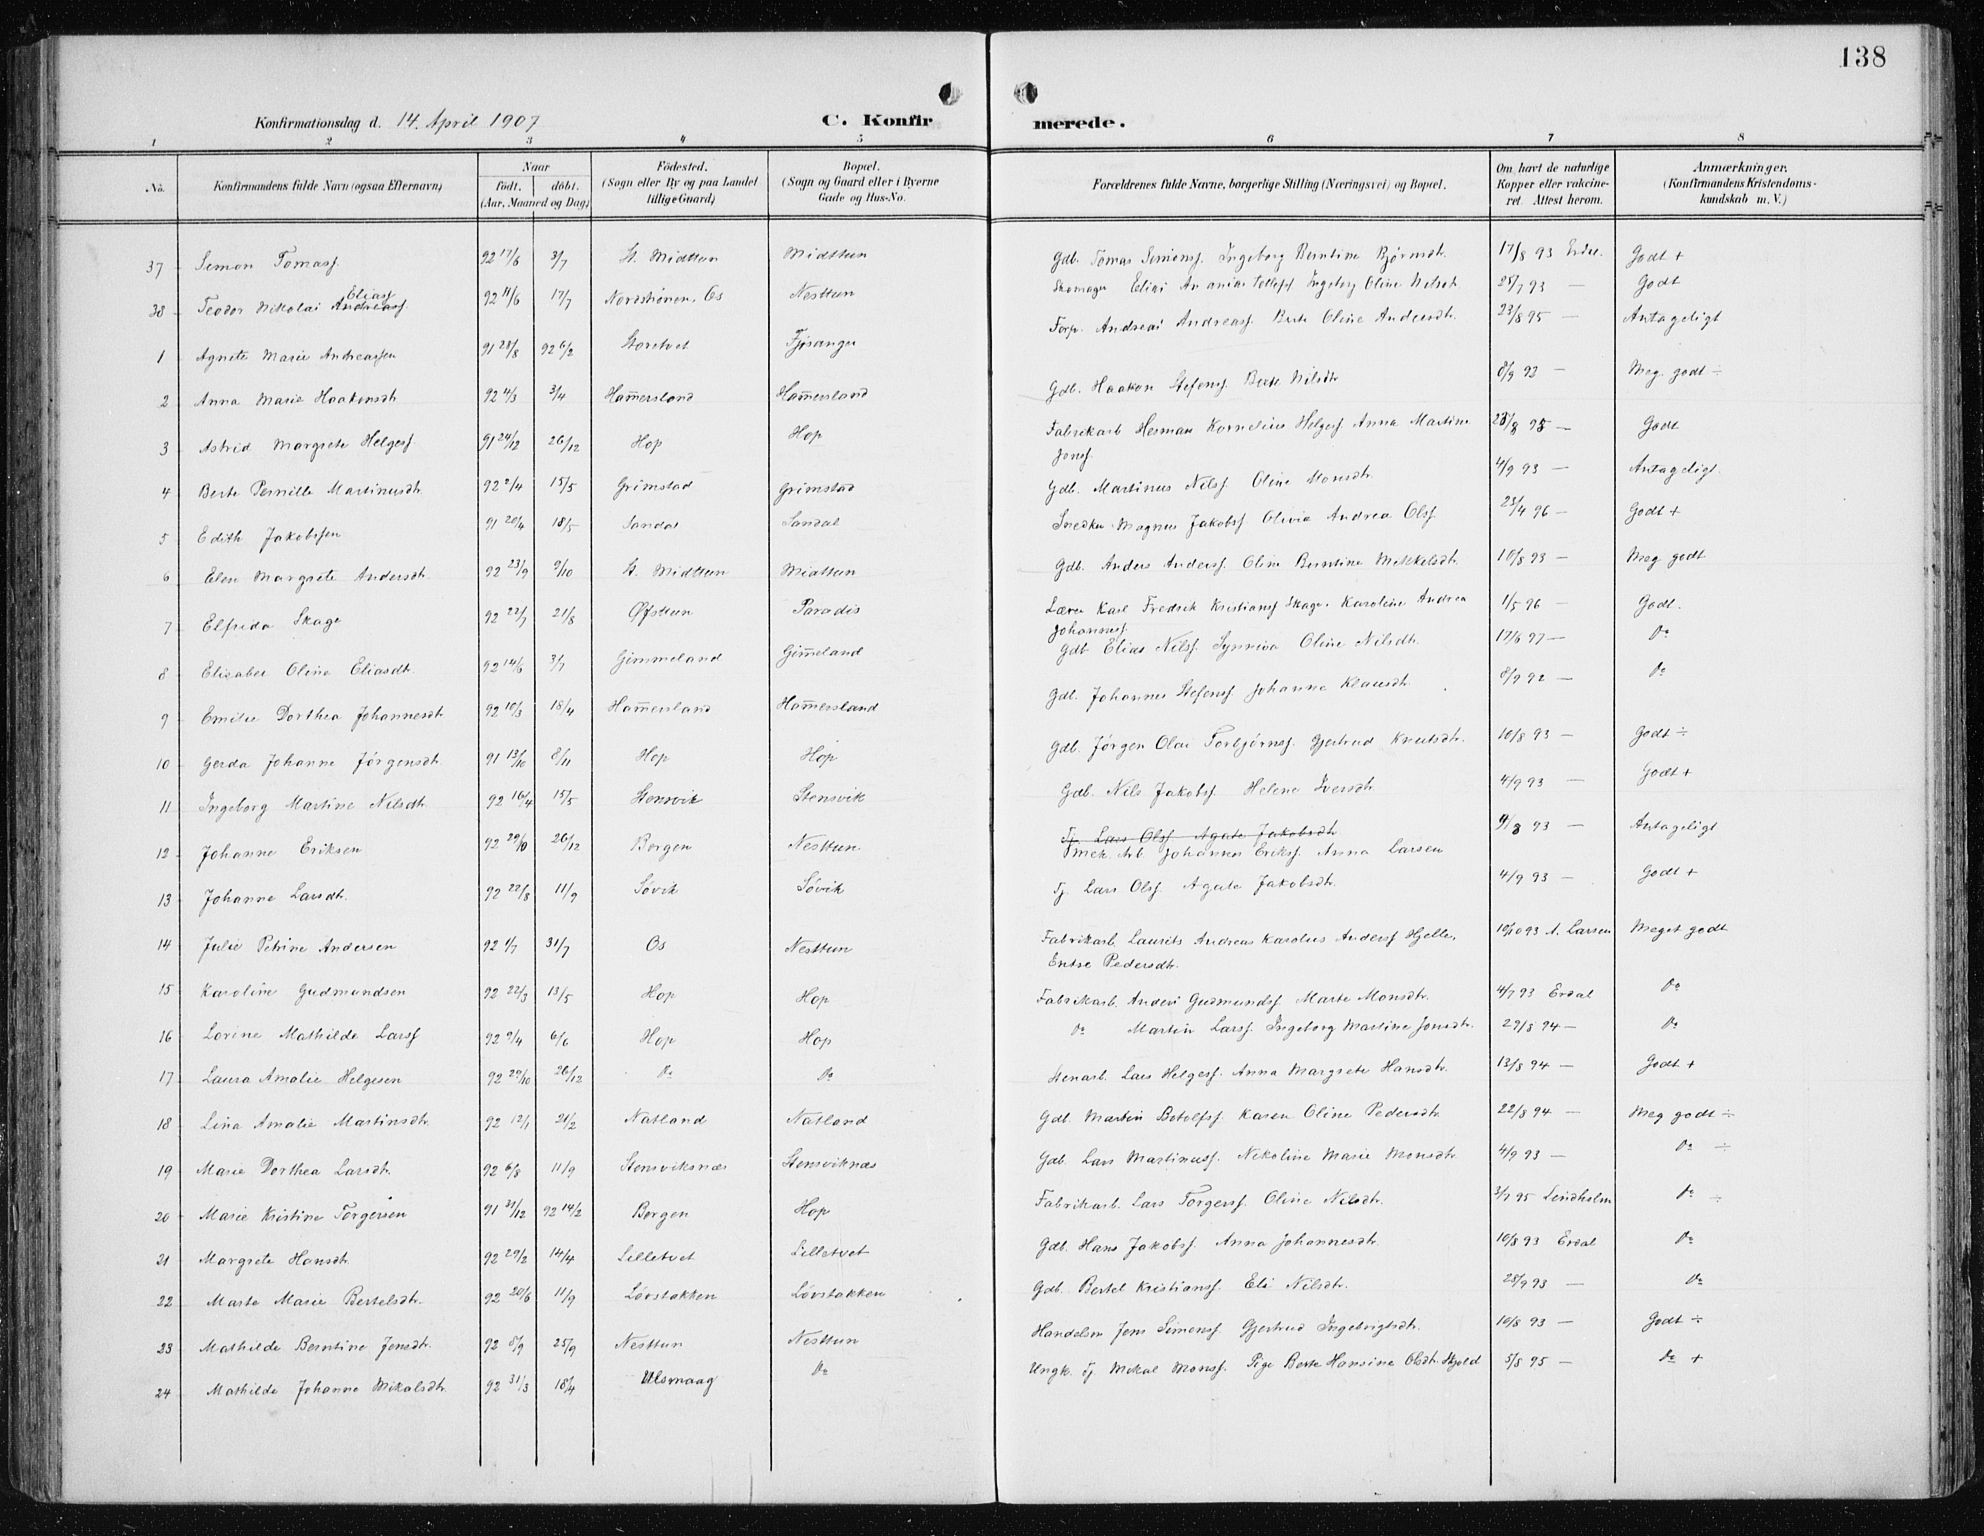 138
Konfirmationsdag d. 14. April 1907 C. Konfir merede.
1 2 3 4 5 6 7 8
No. Konfirmandens fulde Navn (ogsaa Efternavn) Naar født. døbt. (Aar, Maaned og Dag) Fødested. (Sogn eller By og paa Landet tillige Gaard) Bopæl. (Sogn og Gaard eller i Byerne Gade og Hus-No. Forældrenes fulde Navne, borgerlige Stilling (Næringsvei) og Bopæl. Om havt de naturlige Kopper eller vakcineret. Attest herom. Anmærkninger. (Konfirmandens Kristendomskundskab m. V.)
37 Simon Tomasf. 92 17/6 3/7 St. Midttun Midttun Gdb. Tomas Simonsf. Ingeborg Berntine Bjørnsdt. 17/8 93 Godt +
38 Teodor Nikolai Andreasf Eliasf 92 11/6 17/7 Os Nesttun Skomager Elias Ingeborg Oline Nilsdt. 28/7 93 — Godt
1 Agnete Marie Andreassen 91 28/8 92 6/2 Storetvet Fjøsanger Forp. Andreas Andreasf. Berte Oline Andersdt. 23/8 95 — Antageligt
2 Anna Marie Haakonsdt. 92 4/3 3/4 Ham̄ersland Ham̄ersland Gdb. Haakon Stefensf. Berte Nilsdt. 8/9 92 — Meg. godt ÷
3 Astrid Margrete Helgesf 91 24/12 26/12 Hop Hop Fabrikarb Herman Kornelius Helgesf Anna Martine Jonsf. — Godt
4 Berte Pernille Martinusdt. 92 2/4 15/5 Grimstad Grimstad Gdb. Martinus Nilsf. Oline Monsdt. 4/9 93 — Antageligt.
5 Edith Jakobssen 91 20/4 18/5 Sandal Sandal Snedker Magnus Jakobsf Olivia Andrea Olsf. 23/4 96 — Godt +
6 Elen Margrete Andersdt. 92 23/9 9/10 St. Midttun Midttun Gdb. Anders Andersf. Oline Berntine Mikkelsdt. 10/8 93 — Meg godt
7 Elfrida Skage 92 22/7 21/8 Øfsttun Paradis Lærer Karl Fredrik Kristiansf Skage. Karoline Andrea Johannesf 1/5 96 — Godt.
8 Elisabet Oline Eliasdt. 92 14/6 3/7 Gimmeland Gim̄eland Gdb Elias Nilsf. Synniva Oline Nilsdt. 17/6 97 — Do
9 Emilie Dorthea Johannesdt 92 10/3 18/4 Ham̄ersland Ham̄ersland Gdb. Johannes Stefensf. Johanne Klausdt. 8/9 92 — Do
10 Gerda Johanne Jørgensdt 91 13/10 8/11 Hop Hop Gdb. Jørgen Olai Torbjørnsf. Gjertrud Knutsdt. 10/8 93 — Godt ÷
11 Ingeborg Martine Nilsdt. 92 16/4 15/5 Stensvik Stensvik Gdb. Nils Jakobsf Helene Iversdt. 4/9 93 — Godt +
12 Johanne Eriksen 92 29/10 26/12 Bergen Nesttun Tj. Lars Olsf. Agate Jakobsdt
mek. Arb. Johannes Eriksf. Anna Larsen 4/8 93 — Antageligt
13 Johanne Larsdt. 92 22/8 11/9 Søvik Søvik Tj. Lars Olsf. Agate Jakobsdt. 4/9 93 — Godt +
14 Julie Petrine Andersen 92 1/7 31/7 Os Nesttun Fabrikarb. Laurits Andreas Karolius Andersf Hjelle, Endre Pedersdt. 10/10 93 A. Larsen Meget godt
15 Karoline Gudmundsen 92 22/3 13/5 Hop Hop Fabrikarb. Anders Gudmundsf. Marte Monsdt. 4/7 93 Erdal Do
16 Lorine Mathilde Larsf 92 9/4 6/6 Hop Hop Do Martin Larsf. Ingeborg Martine Jonsdt. 29/8 94 — Do
17 Laura Amalie Helgesen 92 29/10 26/12 Do Do Stenarb. Lars Helgesf. Anna Margrete Hansdt. 13/8 94 — Godt +
18 Lina Amalie Martinsdt. 92 12/1 21/2 Natland Natland Gdb. Martin Botolfsf. Karen Oline Pedersdt. 22/8 94 — Meg godt ÷
19 Marie Dorthea Larsdt. 92 6/8 11/9 Stensviksnæs Stensviknæs Gdb. Lars Martinusf. Nikoline Marie Monsdt. 4/9 93 — Do ÷
20 Marie Kristine Torgersen 91 31/12 92 14/2 Bergen Hop Fabrikarb. Lars Torgersf. Oline Nilsdt. 3/7 95 Lindholm Do ÷
21 Margrete Hansdt. 92 29/2 14/4 Lilletvet Lilletvet Gdb. Hans Jakobsf. Anna Johannesdt. 10/8 93 Erdal Do
22 Marta Marie Bertelsdt. 92 20/6 11/9 Løvstakken Løvstakken Gdb. Bertel Kristiansf. Eli Nilsdt. 28/9 93 — Do
23 Mathilde Berntine Jensdt. 92 8/9 25/9 Nesttun Nesttun Handelsm Jens Simonsf. Gjertrud Ingebrigtsdt. 10/8 93 — Godt ÷
24 Mathilde Johanne Mikalsdt. 92 31/3 18/4 Ulsmaag Do Ungk. tj. Mikal Monsf. Pige Berte Hansine Olsdt. Skjold 5/8 95 — Do +